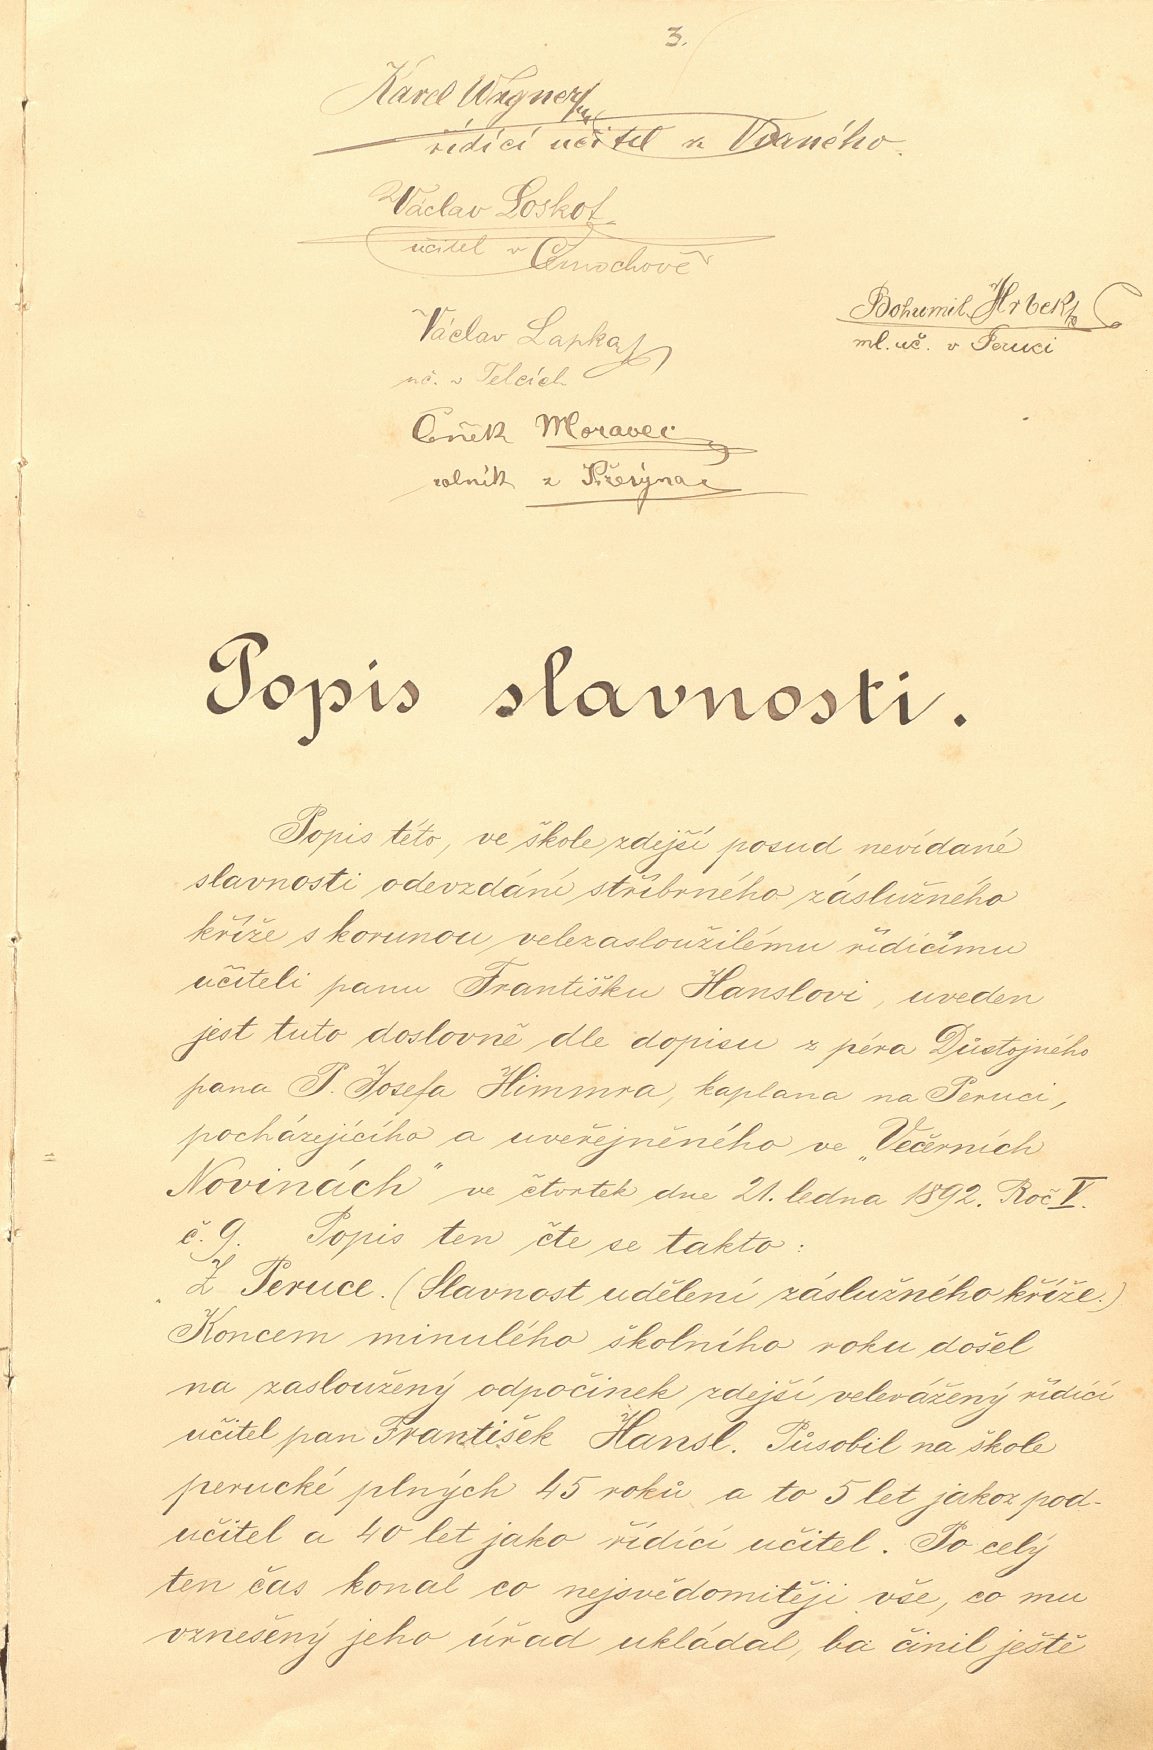 3.
Karel Wágner
řídící učitel z Vraného.
Václav Loskot
učitel v Černochově
Václav Lapka
uč. v Telcích
Bohumil Hrbek
ml. uč. v Peruci
Čeněk Moravec
rolník z
Popis slavnosti.
Popis této, ve škole zdejší posud nevídané
slavnosti odevzdání stříbrného záslužného
kříže s korunou velezasloužilému řídícímu
učiteli panu Františku Hanslovi, uveden
jest tuto doslovně dle dopisu z péra Důstojného
pana P. Josefa Himmra, kaplana na Peruci,
pocházejícího a uveřejněného ve „Večerních
Novinách" ve čtvrtek dne 21. ledna 1892. Roč V.
č. 9. Popis ten čte se takto:
Z Peruce. (Slavnost udělení záslužného kříže.)
Koncem minulého školního roku došel
na zasloužený odpočinek zdejší velevážený řídící
učitel pan František Hansl. Působil na škole
perucké plných 45 roků a to 5 let jakož pod-
učitel a 40 let jako řídící učitel. Po celý
ten čas konal co nejsvědomitěji vše, co mu
vznešený jeho úřad ukládal, ba činil ještě